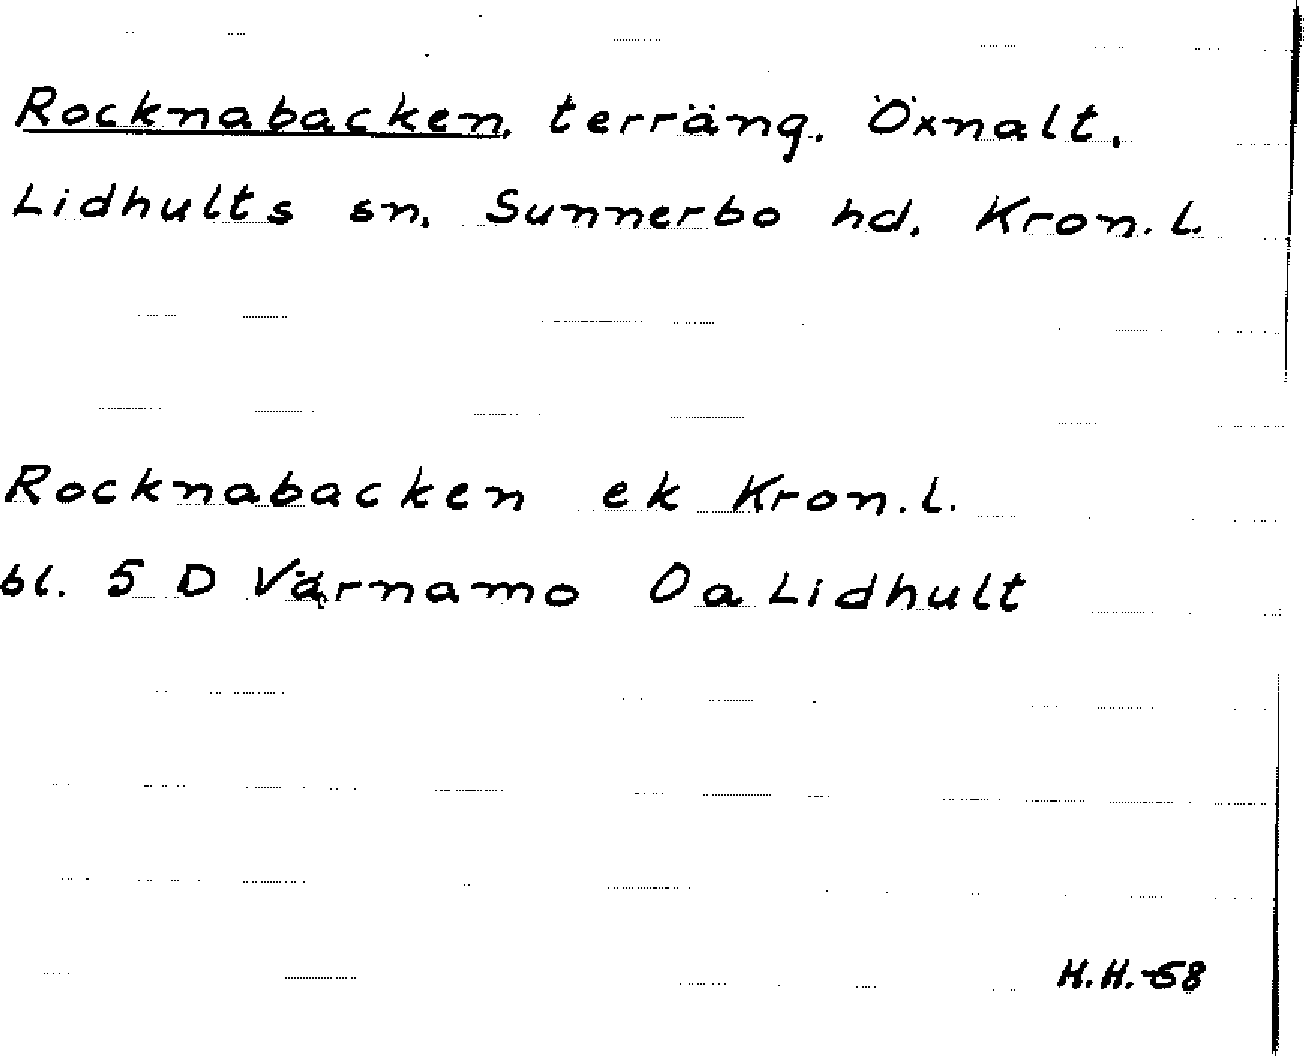 Rocknabacken, terräng. Öxnalt,
Lidhults sn. Sunnerbo hd. Kron. l.
Rocknabacken ek Kron. l.
bl. 5 D Värnamo 0a Lidhult
H.H.-68